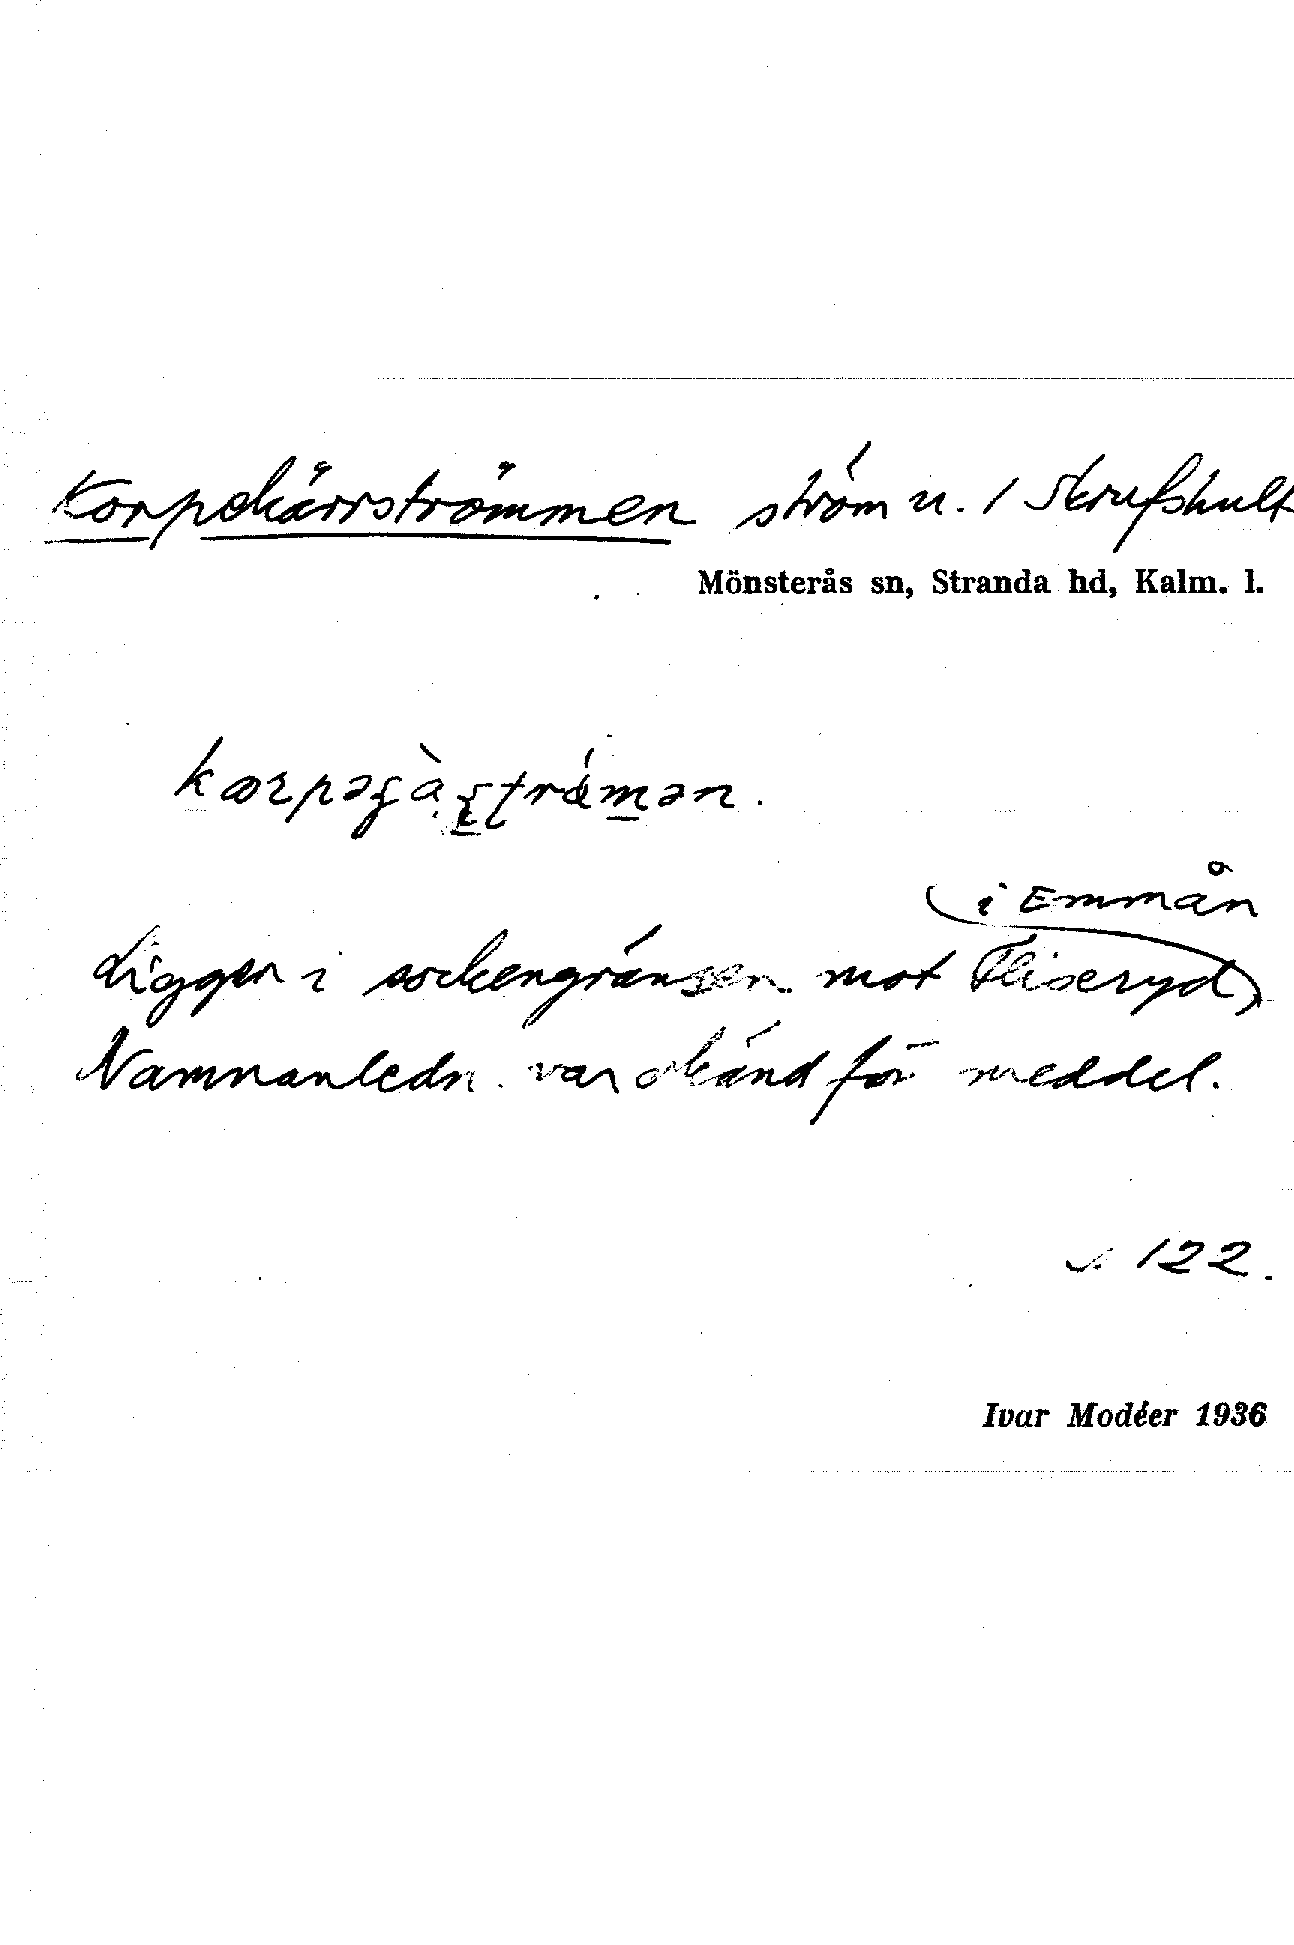 Korpekärrströmmen ström u. / Skrufshult
Mönsterås sn, Stranda hd, Kalm. l.
i Emmån
Ligger i sockengränsen mot Fliseryd,
Namnanledn. var okänd för meddel.
122.
Ivar Modéer 1936